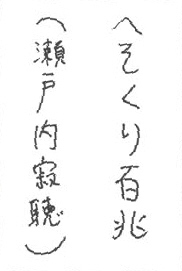 へそくり百兆
(瀬戸内寂聴)